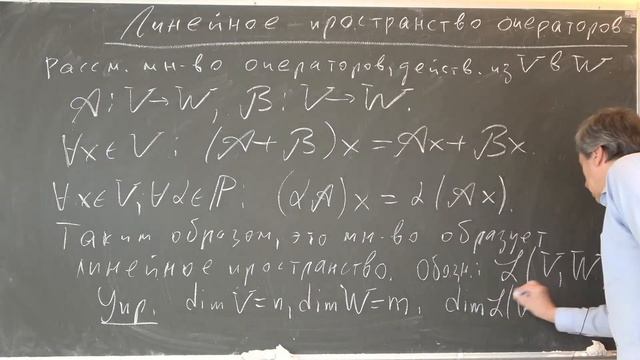 Линейное пространство операторов
Рассм. мн-во операторов, действ. из V в W
A: V→W, B: V→W.
∀x∈V: (A+B)x = Ax+Bx.
∀x∈V, ∀α∈P: (αA)x = α(Ax).
Таким образом, это мн-во образует
линейное пространство. Обозн.: L(V, W
Упр. dim V=n, dim W=m, dim L(V